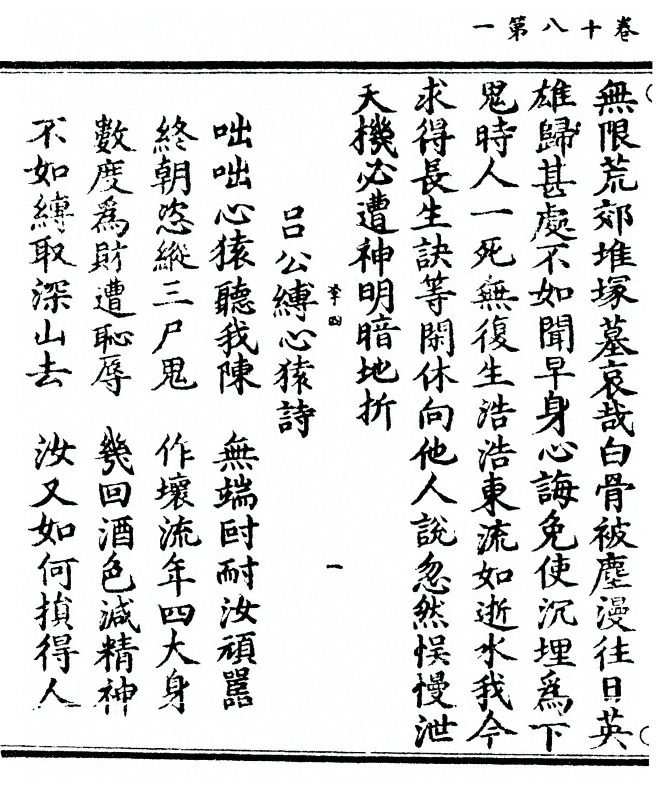 卷十八第一
無限荒郊堆塚墓哀哉白骨被塵漫往日英
雄歸甚處不如聞早身心誨免使沉埋爲下
鬼時人一死無復生浩浩東流如逝水我今
求得長生訣等閑休向他人說忽然悮慢泄
天機必遭神明暗地折
李四
一
呂公縛心猿詩
咄咄心猿聽我陳 無端叵耐汝頑嚚
終朝恣縱三尸鬼 作壞流年四大身
數度爲財遭恥辱 幾回酒色減精神
不如縛取深山去 汝又如何損得人